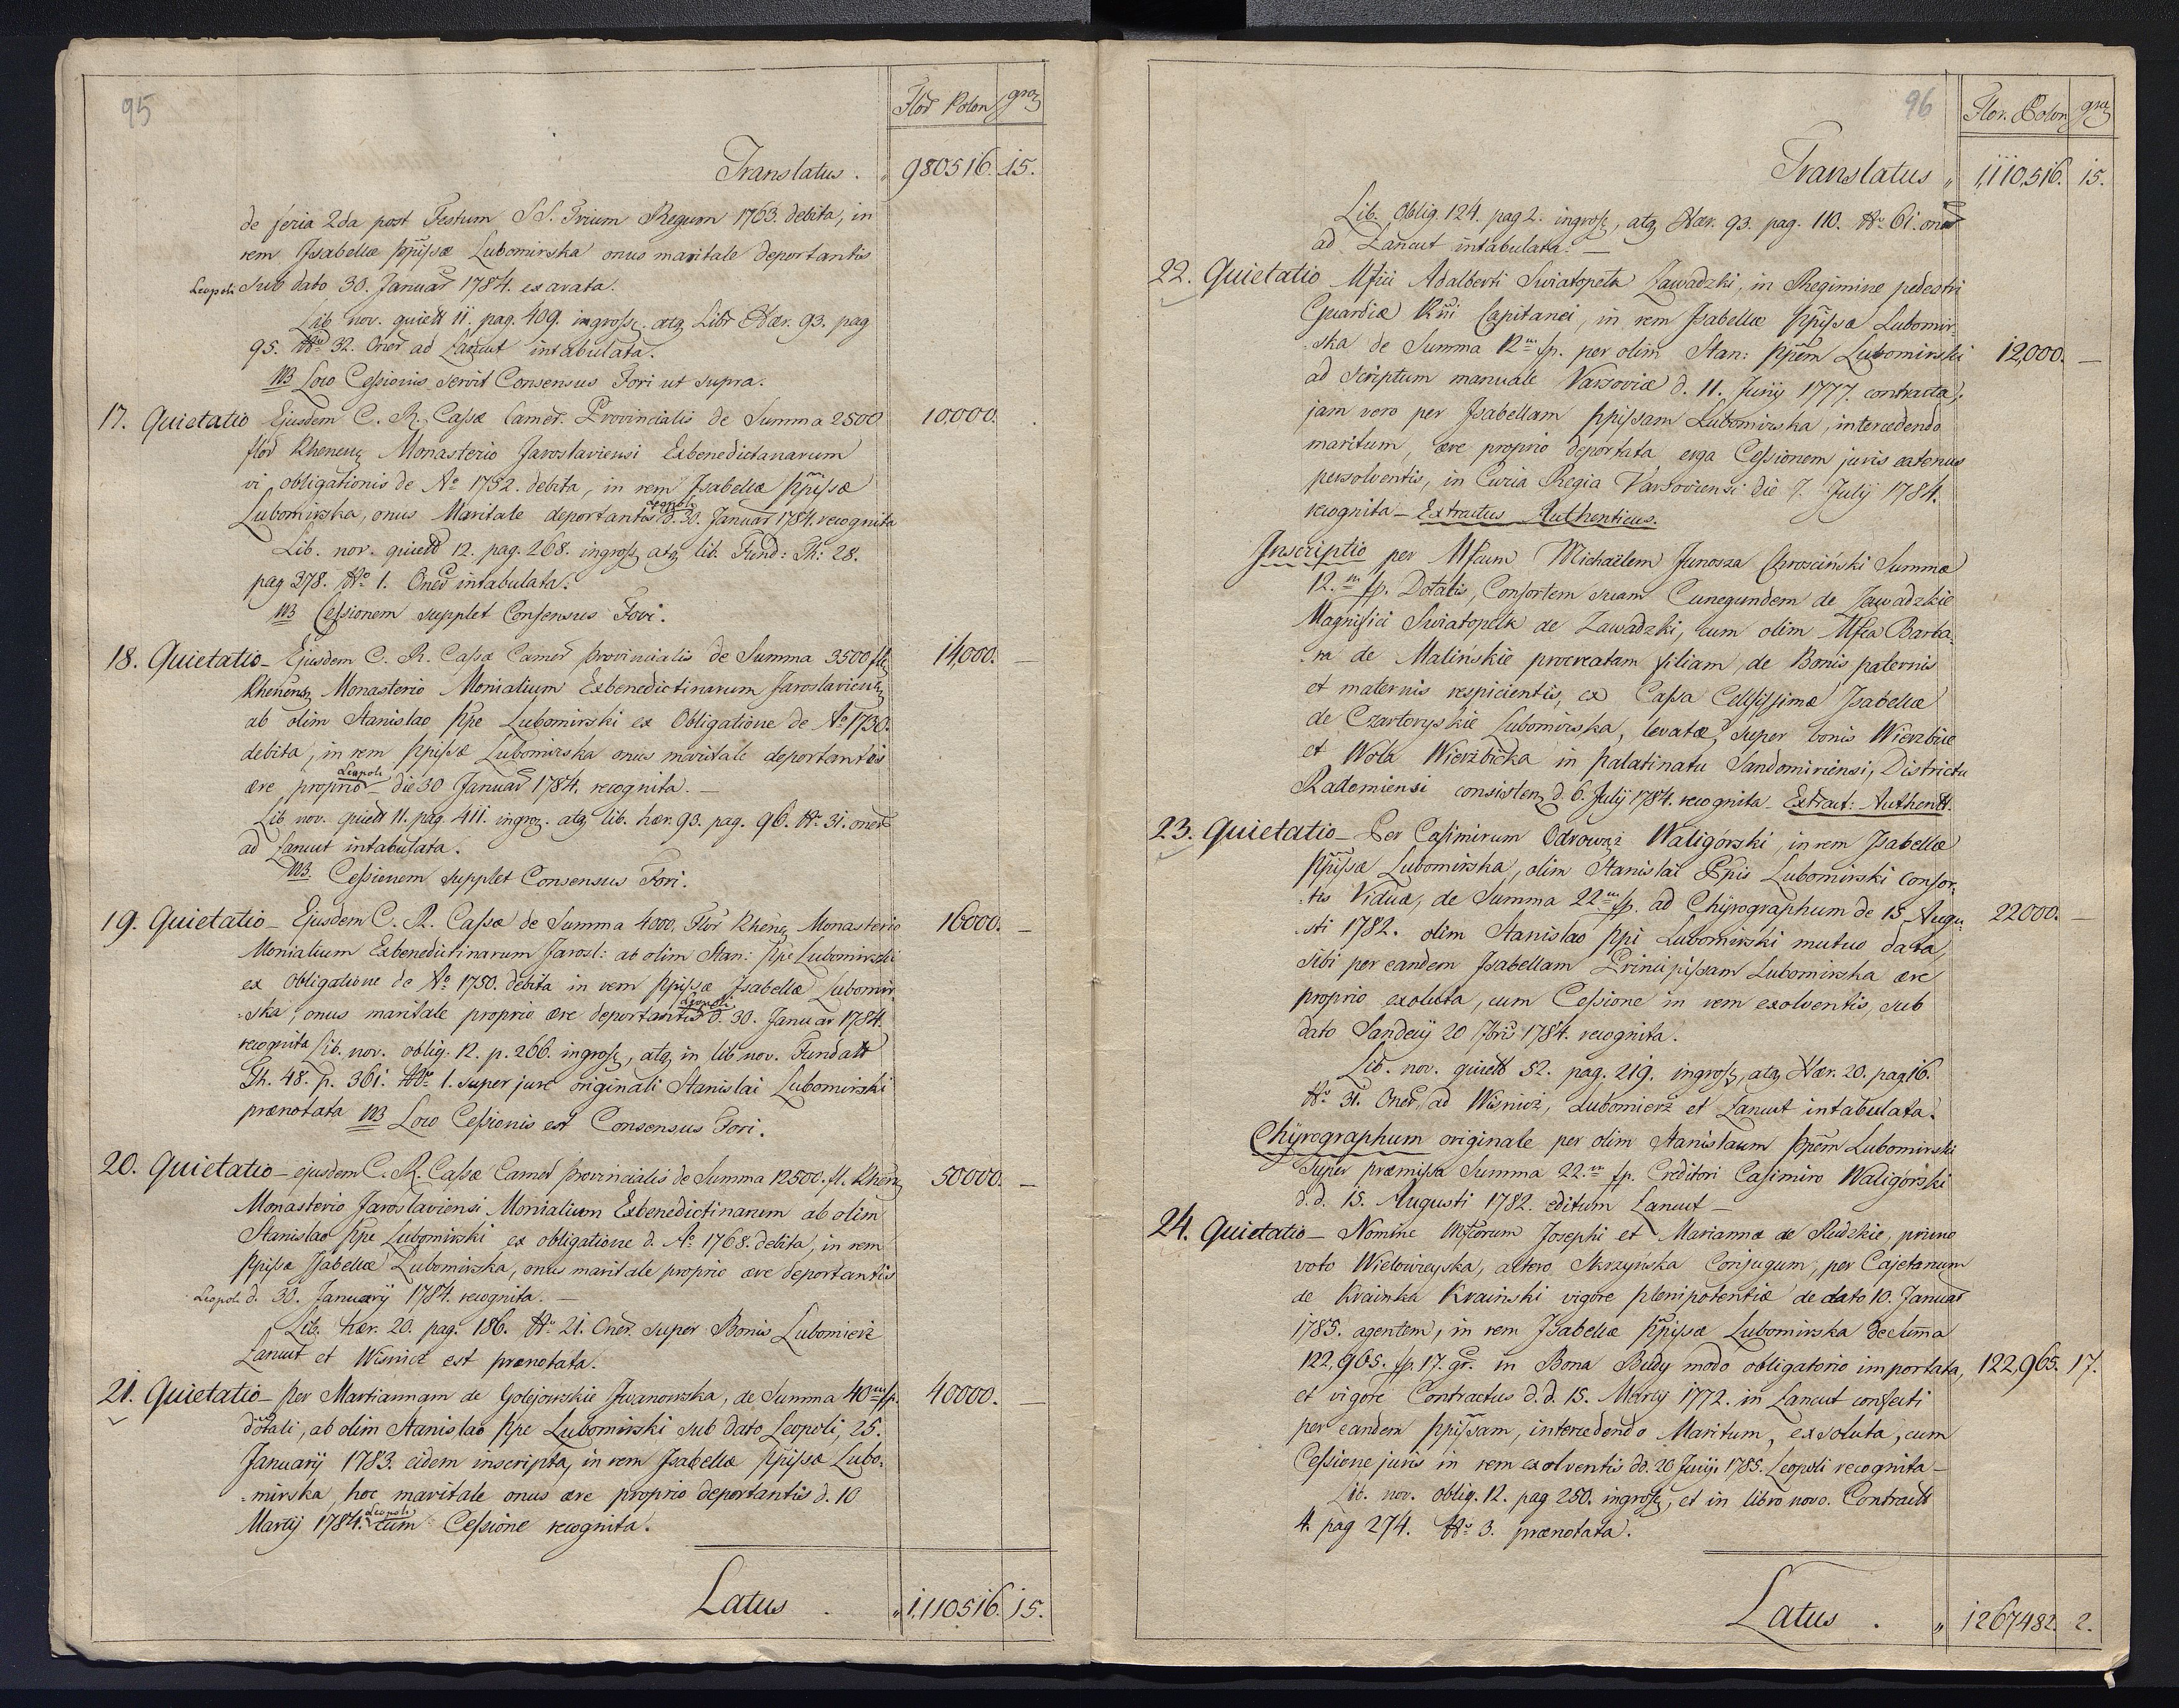 95
Flor Polon groz
Translatus . 980516. 15.
de feria 2da post Festum S S. Trium Regum 1763. debita, in
rem Isabellæ Ppissæ Lubomirska onus maritale deportantis
Leopoli Sub dato 30. Januar 1784. exarata.
Lib nov. quiett 11. pag. 409. ingross. atq Libr Hær. 93. pag
95. No 32. Oner ad Łancut intabulata.
NB Loco Cessionis servit Consensus Fori ut supra.
17. Quietatio Ejusdem C. R. Cassæ Camer. Provincialis de Summa 2500 10,000.
flor Rhenenz Monasterio Jaroslaviensi Exbenedictanarum
vi obligationis de Ao 1752. debita, in rem Isabellæ Ppissæ
Lubomirska, onus Maritale deportantis Leopoli d. 30. Januar 1784. recognita
Lib. nov. quiett 12. pag. 268. ingross atq lib. Fund: Th: 28.
pag 378. No 1. Oner intabulata.
NB Cessionem supplet Consensus Fori.
18. Quietatio - Ejusdem C. R. Cassæ Camer provincialis de Summa 3500 fl. 14,000. —
Rhenens Monasterio Monialium Exbenedictinarum Jaroslaviens
ab olim Stanislao Ppe Lubomirski ex Obligatione de Ao 1730.
debita, in rem Ppissæ Lubomirska onus maritale deportantis
ære proprio Leopoli die 30 Januar 1784. recognita. —
Lib nov. quiett 11. pag. 411. ingroz. atq lib. hær. 93. pag. 96. No 31. oner
ad Łancut intabulata.
NB. Cessionem supplet Consensus Fori.
19. Quietatio - Ejusdem C. R. Cassæ de Summa 4000, Flor Rhenz Monasterio 16000. —
Monialium Exbenedictinarum Jarosl: ab olim Stan: Ppe Lubomirski
ex Obligatione de Ao 1750. debita in rem Ppissæ Isabellæ Lubomir-
-ska, onus maritale proprio ære deportantis Leopoli d. 30. Januar 1784.
recognita Lib. nov. oblig. 12. p. 266. ingross, atq in lib nov. Fundatt
Th. 48. p. 361. No 1. super jure originali Stanislai Lubomirski
prænotata NB Loco Cessionis est Consensus Fori.
20. Quietatio - ejusdem C. R. Cassæ Camer provincialis de Summa 12500. fl. Rhenz 50000. —
Monasterio Jaroslaviensi Monialium Exbenedictinarum ab olim
Stanislao Ppe Lubomirski ex obligatione d. Ao 1768. debita, in rem
Ppissæ Isabellæ Lubomirska, onus maritale proprio ære deportantis
Leopoli d. 30. Januarij 1784. recognita. —
Lib. hær. 20. pag. 186. No 21. Oner. super Bonis Lubomierz
Łancut et Wisnicz est prænotata.
21. Quietatio - per Mariannam de Golejowskie Iwanowska, de Summa 40m fp. 40000. —
dotali, ab olim Stanislao Ppe Lubomirski sub dato Leopoli, 25.
Januarij 1783. eidem inscripta, in rem Isabellæ Ppissæ Lubo-
-mirska, hoc maritale onus ære proprio deportantis d. 10
Martij 1784. Leopoli cum Cessione recognita.
Latus . 1,110516. 15.
96
Flor. Polon groz
Translatus 1,110,516. 15.
Lib. Oblig. 124. pag 2. ingross, atq Hær. 93. pag. 110. No 61. oner
ad Łancut intabulata. —
22. Quietatio Mfici Adalberti Swiatopełk Zawadzki, in Regimine pedestri
Guardiæ Rni Capitanei, in rem Isabellæ Ppissæ Lubomir-
-ska de Summa 12m fp. per olim Stan: Ppem Lubomirski 12,000. —
ad Scriptum manuale Varsoviæ d. 11. Junij 1777. contracta,
jam vero per Isabellam Ppissam Lubomirska, intercedendo
maritum, ære proprio deportata erga Cessionem juris eatenus
persolventis, in Curia Regia Varsoviensi die 7. Julij 1784.
recognita - Extractus Authenticus.
Inscriptio per Mfcum Michaëlem Junosza Chrosciński Summæ
12.m fp. Dotalis, Consortem suam Cunegundem de Zawadzkie
Magnifici Swiatopełk de Zawadzki, cum olim Mfca Barba-
-ra de Malińskie procreatam filiam, de Bonis paternis
et maternis respicientis, ex Cassa Celsissimæ Isabellæ
de Czartoryskie Lubomirska, levatæ, super bonis Wierzbice
et Wola Wierzbicka in palatinatu Sandomiriensi, Districtu
Radomiensi consistenz d. 6. Julij 1784. recognita - Extract: Authentt.
23. Quietatio - Per Casimirum Odrowąż Waligórski, in rem Isabellæ
Ppissæ Lubomirska, olim Stanislai Ppis Lubomirski consor-
-tis Viduæ, de Summa 22m fp. ad Chÿrographum de 15 Augu- 22000. —
-sti 1782. olim Stanislao Ppi Lubomirski mutuo data,
sibi per eandem Isabellam Principissam Lubomirska ære
proprio exoluta, cum Cessione in rem exolventis, sub
dato Sandecij 20 7bris 1784. recognita.
Lib. nov. quiett 52. pag. 219. ingross, atq Hær. 20. pag 16.
No 31. Oner, ad Wisnicz, Lubomierz et Łancut intabulata.
Chÿrographum originale per olim Stanislaum Ppem Lubomirski
super præmissa Summa 22.m fp. Creditori Casimiro Waligórski
d. d. 15. Augusti 1782. editum Łancut —
24. Quietatio - Nomine Mficorum Josephi et Mariannæ de Rudzkie, primo
voto Wielowieyska, altero Skrzyńska Conjugum, per Cajetanum
de Krainka Kraiński vigore plenipotentiæ de dato 10. Januar
1785. agentem, in rem Isabellæ Ppissæ Lubomirska de Summa
122,965. fp. 17. gr. in Bona Budy modo obligatorio importata, 122,965. 17.
et vigore Contractus d. d. 15. Martij 1772. in Łancut confecti
per eandem Ppissam, intercedendo Maritum, exsoluta, cum
Cessione juris in rem exolventis dd. 20 Junij 1785. Leopoli recognita —
Lib. nov. oblig. 12. pag 250. ingross, et in libro novo. Contractt
4. pag 274. No 3. prænotata.
Latus . 1267482. 2.